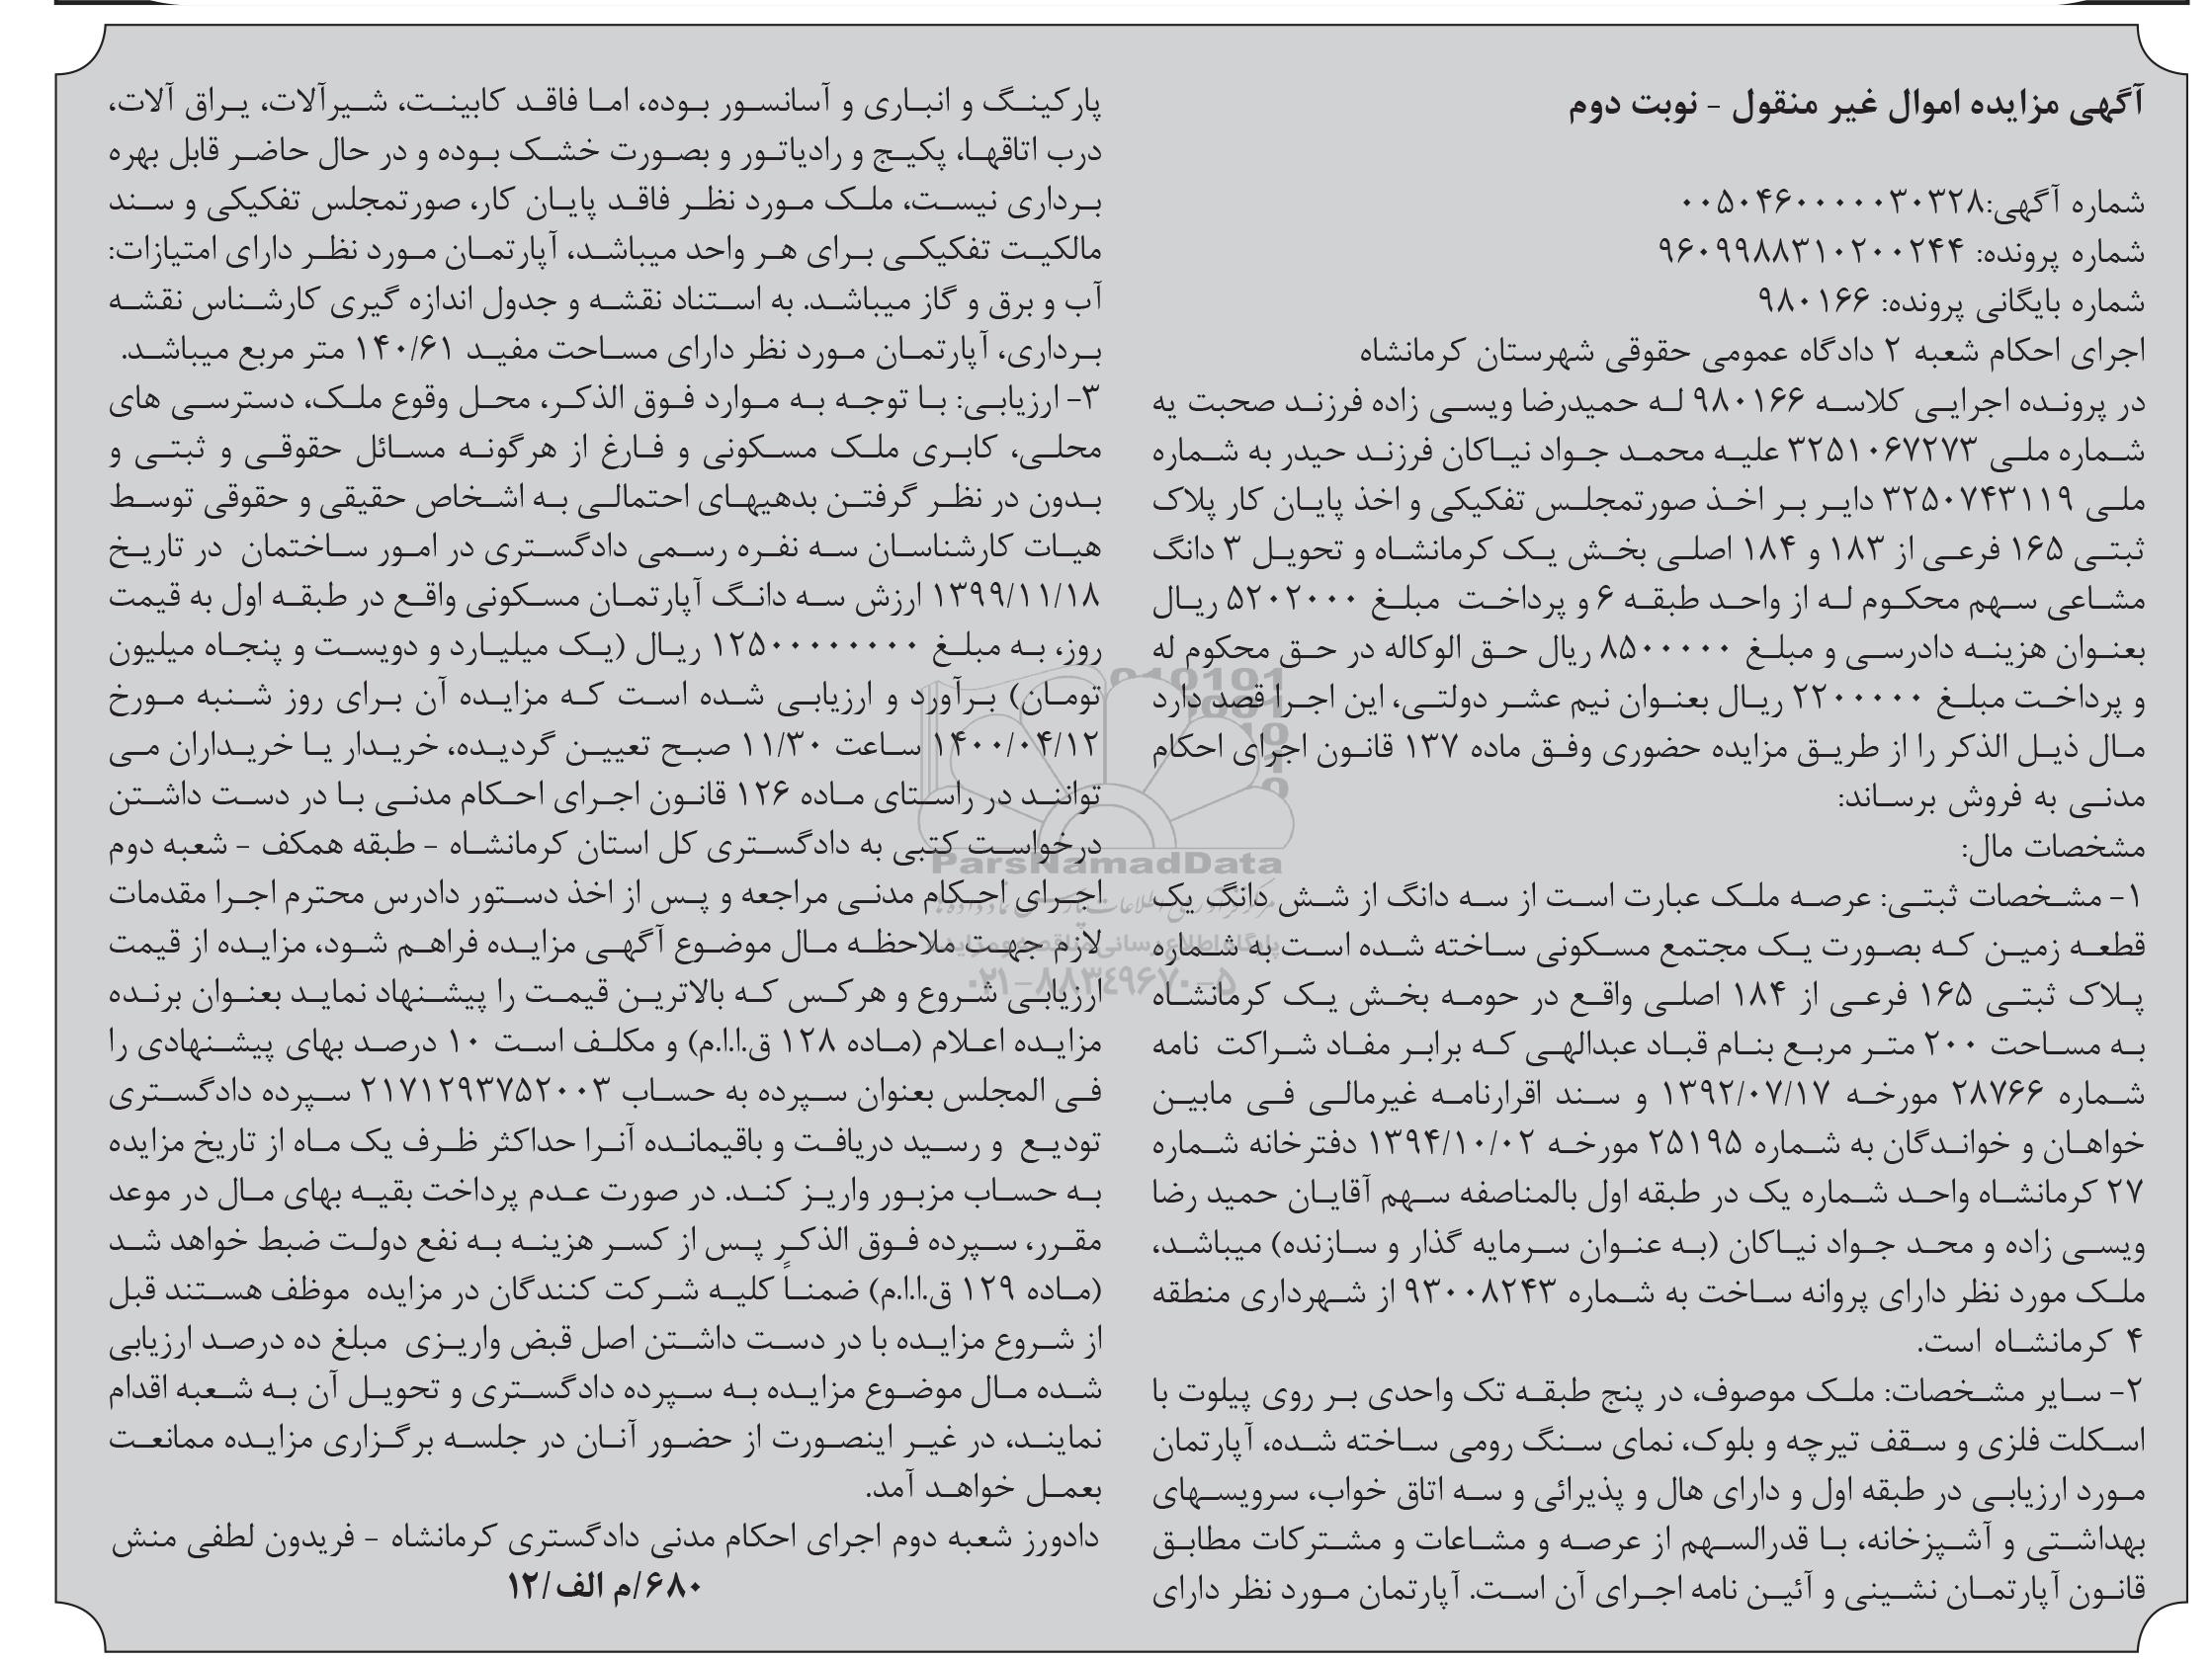 آگهی مزایده اموال غیر منقول - نوبت دوم
شماره آگهی:۰۰۵۰۴۶۰۰۰۰۰۳۰۳۲۸
شماره پرونده: ۹۶۰۹۹۸۸۳۱۰۲۰۰۲۴۴
شماره بایگانی پرونده: ۹۸۰۱۶۶
اجرای احکام شعبه ۲ دادگاه عمومی حقوقی شهرستان کرمانشاه
در پرونده اجرایی کلاسه ۹۸۰۱۶۶ له حمیدرضا ویسی زاده فرزند صحبت یه
شماره ملی ۳۲۵۱۰۶۷۲۷۳ علیه محمد جواد نیاکان فرزند حیدر به شماره
ملی ۳۲۵۰۷۴۳۱۱۹ دایر بر اخذ صورتمجلس تفکیکی و اخذ پایان کار پلاک
ثبتی ۱۶۵ فرعی از ۱۸۳ و ۱۸۴ اصلی بخش یک کرمانشاه و تحویل ۳ دانگ
مشاعی سهم محکوم له از واحد طبقه ۶ و پرداخت مبلغ ۵۲۰۲۰۰۰ ریال
بعنوان هزینه دادرسی و مبلغ ۸۵۰۰۰۰۰ ریال حق الوکاله در حق محکوم له
و پرداخت مبلغ ۲۲۰۰۰۰۰ ریال بعنوان نیم عشر دولتی، این اجرا قصد دارد
مال ذیل الذکر را از طریق مزایده حضوری وفق ماده ۱۳۷ قانون اجرای احکام
مدنی به فروش برساند:
مشخصات مال:
۱- مشخصات ثبتی: عرصه ملک عبارت است از سه دانگ از شش دانگ یک
قطعه زمین که بصورت یک مجتمع مسکونی ساخته شده است به شماره
پلاک ثبتی ۱۶۵ فرعی از ۱۸۴ اصلی واقع در حومه بخش یک کرمانشاه
به مساحت ۲۰۰ متر مربع بنام قباد عبدالهی که برابر مفاد شراکت نامه
شماره ۲۸۷۶۶ مورخه ۱۳۹۲/۰۷/۱۷ و سند اقرارنامه غیرمالی فی مابین
خواهان و خواندگان به شماره ۲۵۱۹۵ مورخه ۱۳۹۴/۱۰/۰۲ دفترخانه شماره
۲۷ کرمانشاه واحد شماره یک در طبقه اول بالمناصفه سهم آقایان حمید رضا
ویسی زاده و محد جواد نیاکان (به عنوان سرمایه گذار و سازنده) میباشد،
ملک مورد نظر دارای پروانه ساخت به شماره ۹۳۰۰۸۲۴۳ از شهرداری منطقه
۴ کرمانشاه است.
۲- سایر مشخصات: ملک موصوف، در پنج طبقه تک واحدی بر روی پیلوت با
اسکلت فلزی و سقف تیرچه و بلوک، نمای سنگ رومی ساخته شده، آپارتمان
مورد ارزیابی در طبقه اول و دارای هال و پذیرائی و سه اتاق خواب، سرویسهای
بهداشتی و آشپزخانه، با قدرالسهم از عرصه و مشاعات و مشترکات مطابق
قانون آپارتمان نشینی و آئین نامه اجرای آن است. آپارتمان مورد نظر دارای
پارکینگ و انباری و آسانسور بوده، اما فاقد کابینت، شیرآلات، یراق آلات،
درب اتاقها، پکیج و رادیاتور و بصورت خشک بوده و در حال حاضر قابل بهره
برداری نیست، ملک مورد نظر فاقد پایان کار، صورتمجلس تفکیکی و سند
مالکیت تفکیکی برای هر واحد میباشد، آپارتمان مورد نظر دارای امتیازات:
آب و برق و گاز میباشد. به استناد نقشه و جدول اندازه گیری کارشناس نقشه
برداری، آپارتمان مورد نظر دارای مساحت مفید ۱۴۰/۶۱ متر مربع میباشد.
۳- ارزیابی: با توجه به موارد فوق الذکر، محل وقوع ملک، دسترسی های
محلی، کابری ملک مسکونی و فارغ از هرگونه مسائل حقوقی و ثبتی و
بدون در نظر گرفتن بدهیهای احتمالی به اشخاص حقیقی و حقوقی توسط
هیات کارشناسان سه نفره رسمی دادگستری در امور ساختمان در تاریخ
۱۳۹۹/۱۱/۱۸ ارزش سه دانگ آپارتمان مسکونی واقع در طبقه اول به قیمت
روز، به مبلغ ۱۲۵۰۰۰۰۰۰۰۰ ریال (یک میلیارد و دویست و پنجاه میلیون
تومان) برآورد و ارزیابی شده است که مزایده آن برای روز شنبه مورخ
۱۴۰۰/۰۴/۱۲ ساعت ۱۱/۳۰ صبح تعیین گردیده، خریدار یا خریداران می
توانند در راستای ماده ۱۲۶ قانون اجرای احکام مدنی با در دست داشتن
درخواست کتبی به دادگستری کل استان کرمانشاه - طبقه همکف - شعبه دوم
اجرای احکام مدنی مراجعه و پس از اخذ دستور دادرس محترم اجرا مقدمات
لازم جهت ملاحظه مال موضوع آگهی مزایده فراهم شود، مزایده از قیمت
ارزیابی شروع و هرکس که بالاترین قیمت را پیشنهاد نماید بعنوان برنده
مزایده اعلام (ماده ۱۲۸ ق.ا.ا.م) و مکلف است ۱۰ درصد بهای پیشنهادی را
فی المجلس بعنوان سپرده به حساب ۲۱۷۱۲۹۳۷۵۲۰۰۳ سپرده دادگستری
تودیع و رسید دریافت و باقیمانده آنرا حداکثر ظرف یک ماه از تاریخ مزایده
به حساب مزبور واریز کند. در صورت عدم پرداخت بقیه بهای مال در موعد
مقرر، سپرده فوق الذکر پس از کسر هزینه به نفع دولت ضبط خواهد شد
(ماده ۱۲۹ ق.ا.ا.م) ضمناً کلیه شرکت کنندگان در مزایده موظف هستند قبل
از شروع مزایده با در دست داشتن اصل قبض واریزی مبلغ ده درصد ارزیابی
شده مال موضوع مزایده به سپرده دادگستری و تحویل آن به شعبه اقدام
نمایند، در غیر اینصورت از حضور آنان در جلسه برگزاری مزایده ممانعت
بعمل خواهد آمد.
دادورز شعبه دوم اجرای احکام مدنی دادگستری کرمانشاه - فریدون لطفی منش
۶۸۰/م الف/۱۲
ParsNamadData
پایگاه اطلاع رسانی مناقصه و مزایده
۰۲۱-۸۸۳۴۹۶۷۰-۵